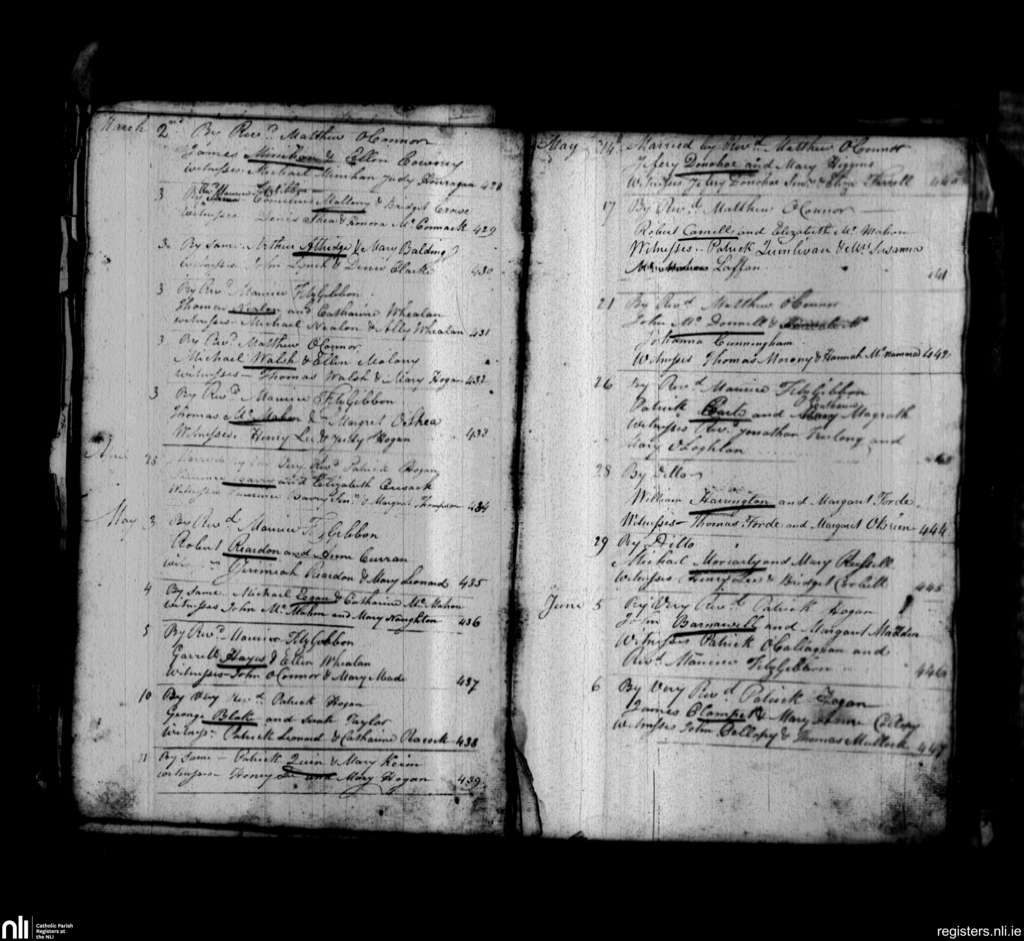 March 2nd By Revd. Matthew O'Connor
James Minihan & Ellen Cowney
Witnesses Michael Minihan Judy Hourigan 428
3 By Revd. Maurice FitzGibbon
Cornelius Mallony & Bridget Crowe
Witnesses Denis Shea & Honora McCormack 429
3 By Same Arthur & Mary Balding
Witnesses John Lynch & Denis Clarke 430
3 By Revd. Maurice FitzGibbon
Thomas Nealon and Catharine Whealan
Witnesses - Michael Nealon & Ally Whealan 431
3 By Revd. Matthew O'Connor
Michael Walsh & Ellen Malony
Witnesses - Thomas Walsh & Mary Hogan 432
3 By Revd. Maurice FitzGibbon
Thomas Mc. Mahon & Margret O'Shea
Witnesses. Henry Lee & Judy Hogan 433
April 25 Married by the Very Revd. Patrick Hogan
and Elizabeth Cusack
Witnesses Barry Senr. & Margret Thompson 434
May 3 By Revd Maurice FitzGibbon
Robert Reardon and Anne Curran
Jerimiah Reardon & Mary Leonard 435
4 By Same Michael Eegan & Catharine Mc. Mahon
Witnesses John Mc. Mahon and Mary Naughton 436
5 By Revd. Maurice FitzGibbon
Garrett Hayes & Ellen Whealan
Witnesses John O'Connor & Mary Meade 437
10 By Very Revd. Patrick Hogan
George Blake and Sarah Taylor
Witness. Patrick Leonard & Catharine Peacock 438
11 By Same - Patrick Quin & Mary Keirn
Witnesses - Henry Lee and Mary Hogan 439
May 14 Married by Revd. Matthew O'Connor
Jefery Donohoe and Mary Higgins
Witnesses Jefery Donohoe Senr. & Eliza 440
17 By Revd. Matthew O'Connor
Robert Camell and Elizabeth Mc. Mahon
Witnesses - Patrick Quinlivan & Mrs Susanna
Laffan 441
21 By Revd Matthew O'Connor
John Mc. Donnell &
Johanna Cunningham
Witnesses Thomas Morony & Hannah Mc.namara 442
26 By Revd Maurice FitzGibbon
Catharine
Patrick and Mary Magrath
Witnesses Revd. Jonathan Furlong and
Mary O'Loghlan 443
28 By Ditto
William Harrington and Margaret Forde
Witnesses - Thomas Forde and Margaret O'Brien 444
29 By Ditto
Michael Moriarty and Mary Russell
Witnesses Henry Lee & Bridget Corbett 445
June 5 By Very Revd. Patrick Hogan
John Barnawell and Margaret Madden
Witnesses Patrick O'Callaghan and
Revd. Maurice FitzGibbon 446
6 By Very Revd Patrick Hogan
James & Mary Anne
Witnesses John & Thomas Mullock 447
nli Catholic Parish
Registers at
the NLI
registers.nli.ie